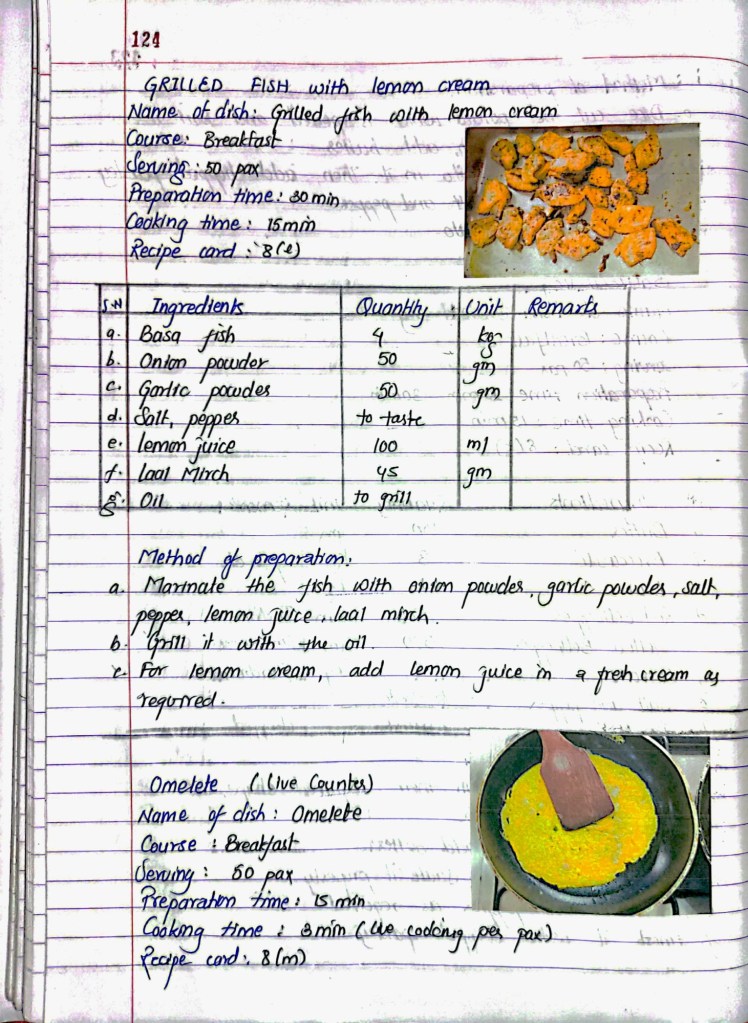 124
GRILLED FISH with lemon cream
Name of dish: Grilled fish with lemon cream
Course: Breakfast
Serving: 50 pax
Preparation time: 30 min
Cooking time: 15 min
Recipe card: 8(l)
S.N Ingredients Quantity Unit Remarks
a. Basa fish 4 kg
b. Onion powder 50 gm
c. Garlic powder 50 gm
d. Salt, pepper to taste
e. lemon juice 100 ml
f. laal Mirch 45 gm
g. Oil to grill
Method of preparation:
a. Marinate the fish with onion powder, garlic powder, salt,
pepper, lemon juice, laal mirch.
b. Grill it with the oil.
c. For lemon cream, add lemon juice in a fresh cream as
required.
Omelete (Live Counter)
Name of dish: Omelete
Course: Breakfast
Serving: 50 pax
Preparation time: 15 min
Cooking time: 3min (live cooking per pax)
Recipe card: 8(m)